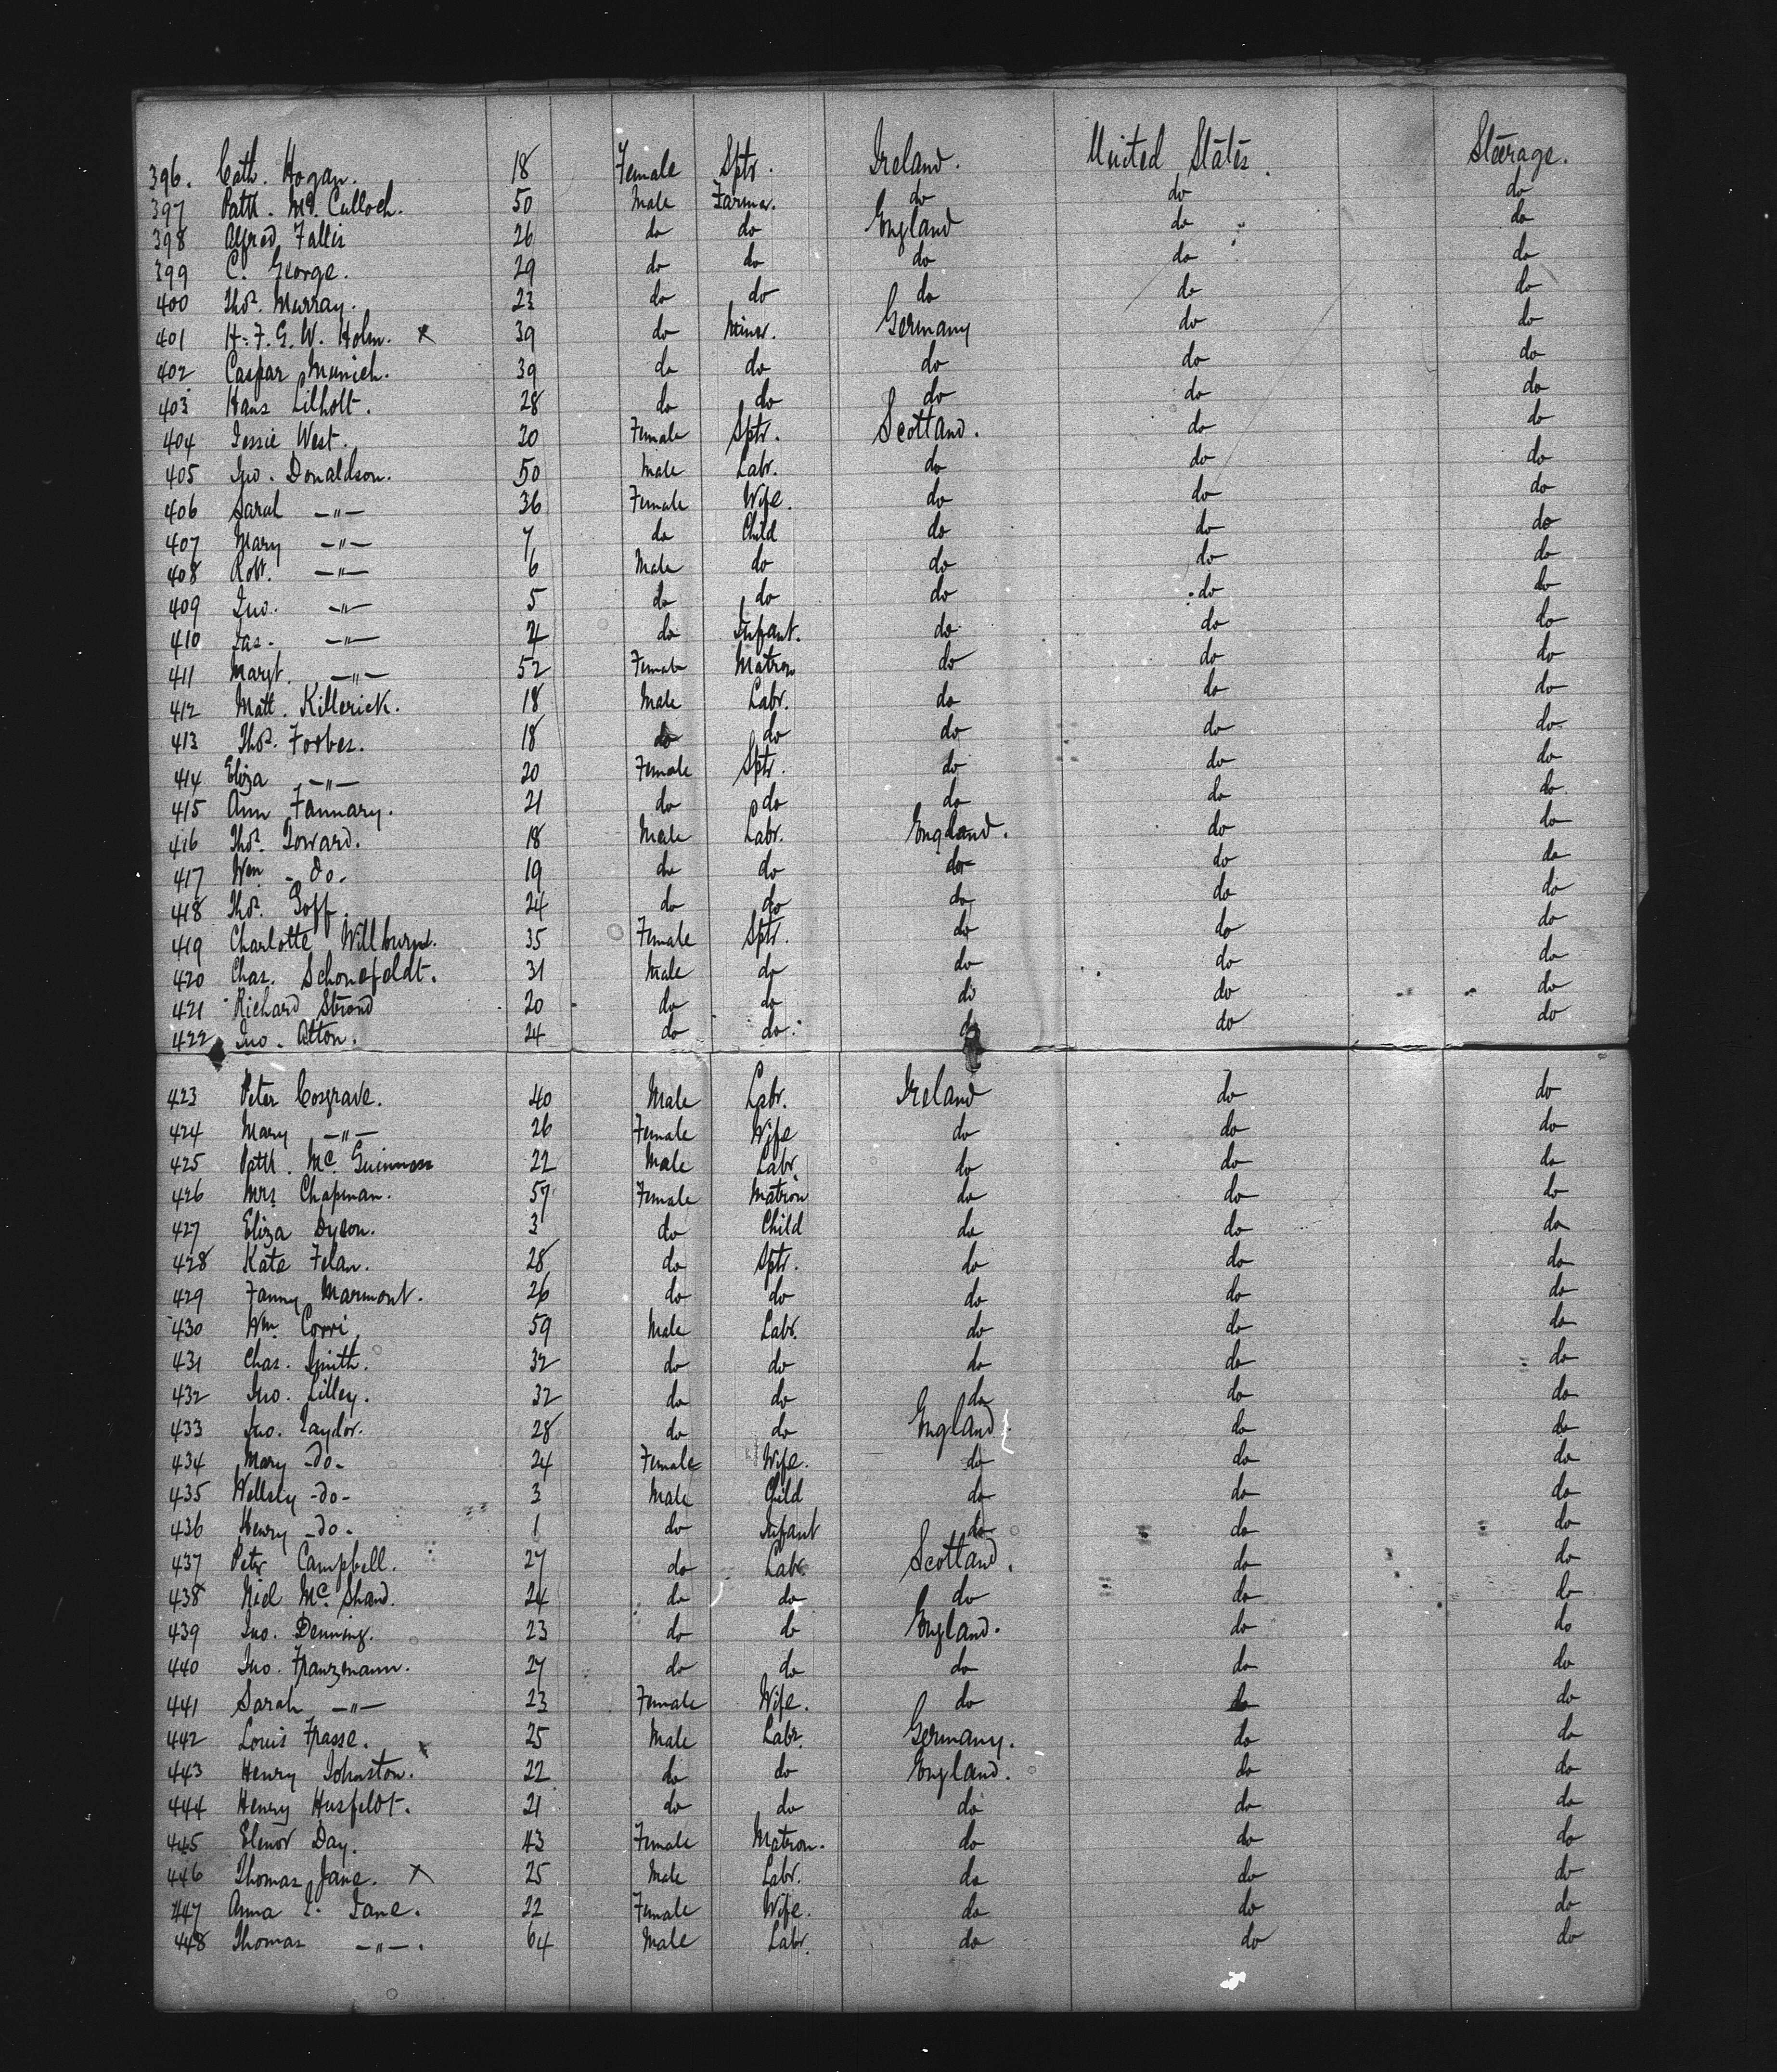 396. Cath. Hogan. 18 Female Sptr. Ireland. United States. Steerage.
397 Patk. Mc. Culloch. 50 Male Farmer. do do do
398 Alfred Fallis 26 do do England do do
399 C. George. 29 do do do do do
400 Thos. Murray. 23 do do do do do
401 H. F. G. W. Holm. x 39 do Miner. Germany do do
402 Caspar Munich. 39 do do do do do
403 Hans Lilholt. 28 do do do do do
404 Jessie West. 20 Female Sptr. Scotland. do do
405 Jno. Donaldson. 50 Male Labr. do do do
406 Sarah —"— 36 Female Wife. do do do
407 Mary —"— 7 do Child do do do
408 Robt. —"— 6 Male do do do do
409 Jno. —"— 5 do do do do do
410 Jas. —"— do Infant. do do do
411 Margt. —"— 52 Female Matron do do do
412 Matt. Killerick. 18 Male Labr. do do do
413 Thos. Forbes. 18 do do do do do
414 Eliza —"— 20 Female Sptr. do do do
415 Ann Fannary. 21 do do do do do
416 Thos. Toward. 18 Male Labr. England. do do
417 Wm - do. 19 do do do do do
418 Thos. Goff. 24 do do do do do
419 Charlotte 35 Female Sptr. do do do
420 Chas. Schonefeldt. 31 Male do do do do
421 Richard Strond 20 do do do do do
422 Jno. Atton. 24 do do. do do do
423 Peter Cosgrave. 40 Male Labr. Ireland do do
424 Mary —"— 26 Female Wife do do do
425 Patk. Mc. Guinness 22 Male Labr do do do
426 Mrs Chapman. 57 Female Matron do do do
427 Eliza Dyson. 3 do Child do do do
428 Kate Felan. 28 do Sptr. do do do
429 Fanny Marmont. 26 do do do do do
430 Wm. Corri 59 Male Labr. do do do
431 Chas. Smith. 32 do do do do do
432 Jno. Lilley. 32 do do do do do
433 Jno. Taylor. 28 do do England. do do
434 Mary -do- 24 Female Wife. do do do
435 Wellsly -do- 3 Male Child do do do
436 Henry -do- 1 do Infant do do do
437 Peter Campbell. 27 do Labr Scotland. do do
438 Niel Mc. Shand. 24 do do do do do
439 Jno. Denning. 23 do do England. do do
440 Jno. Franzmann. 27 do do do do do
441 Sarah —"— 23 Female Wife. do do do
442 Louis Frasse. x 25 Male Labr. Germany. do do
443 Henry Johnston. 22 do do England. do do
444 Henry Husfeldt. 21 do do do do do
445 Elenor Day. 43 Female Matron. do do do
446 Thomas Jane. x 25 Male Labr. do do do
447 Anna E. Jane. 22 Female Wife. do do do
448 Thomas —"—. 64 Male Labr. do do do